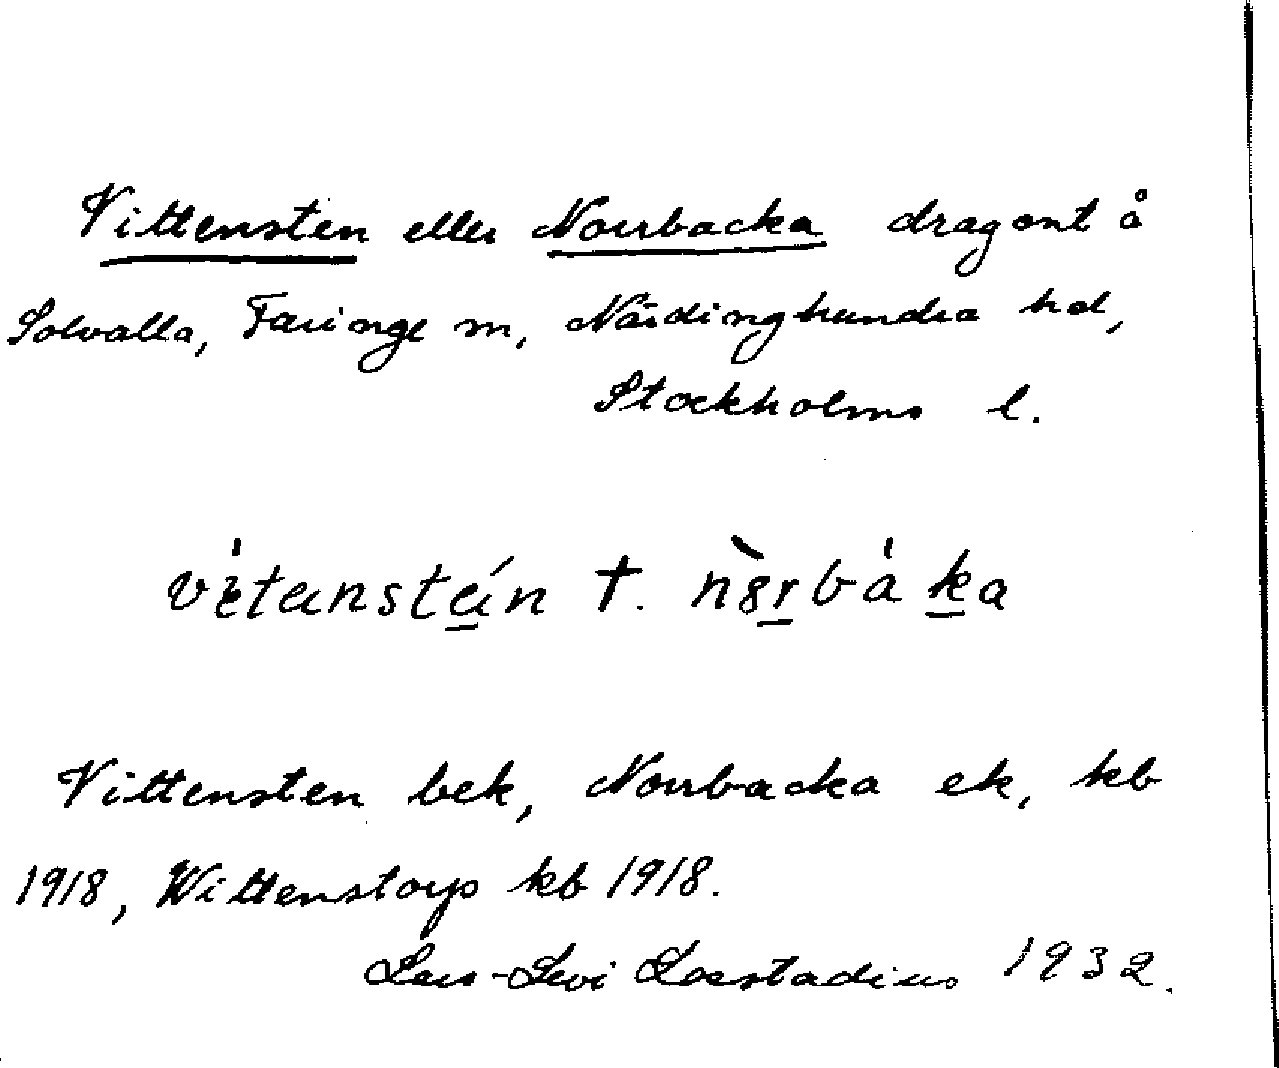 Vittensten eller Norrbacka dragont å
Solvalla, Faringe sn, Närdinghundra hd,
Stockholms l.
vètenstén t. nòrbàka
Vittensten bek, Norrbacka ek, kb
1918, Wittenstorp kb 1918.
Lars-Levi Laestadius 1932.